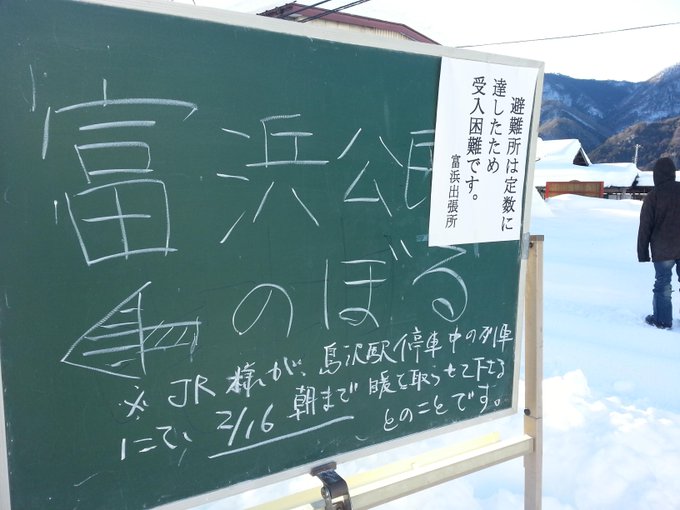 富浜公民
のぼる
※JR様が、鳥沢駅停車中の列車
にて、2/16 朝まで 暖を取らせて下さる
とのことです。
避難所は定数に
達したため
受入困難です。
富浜出張所